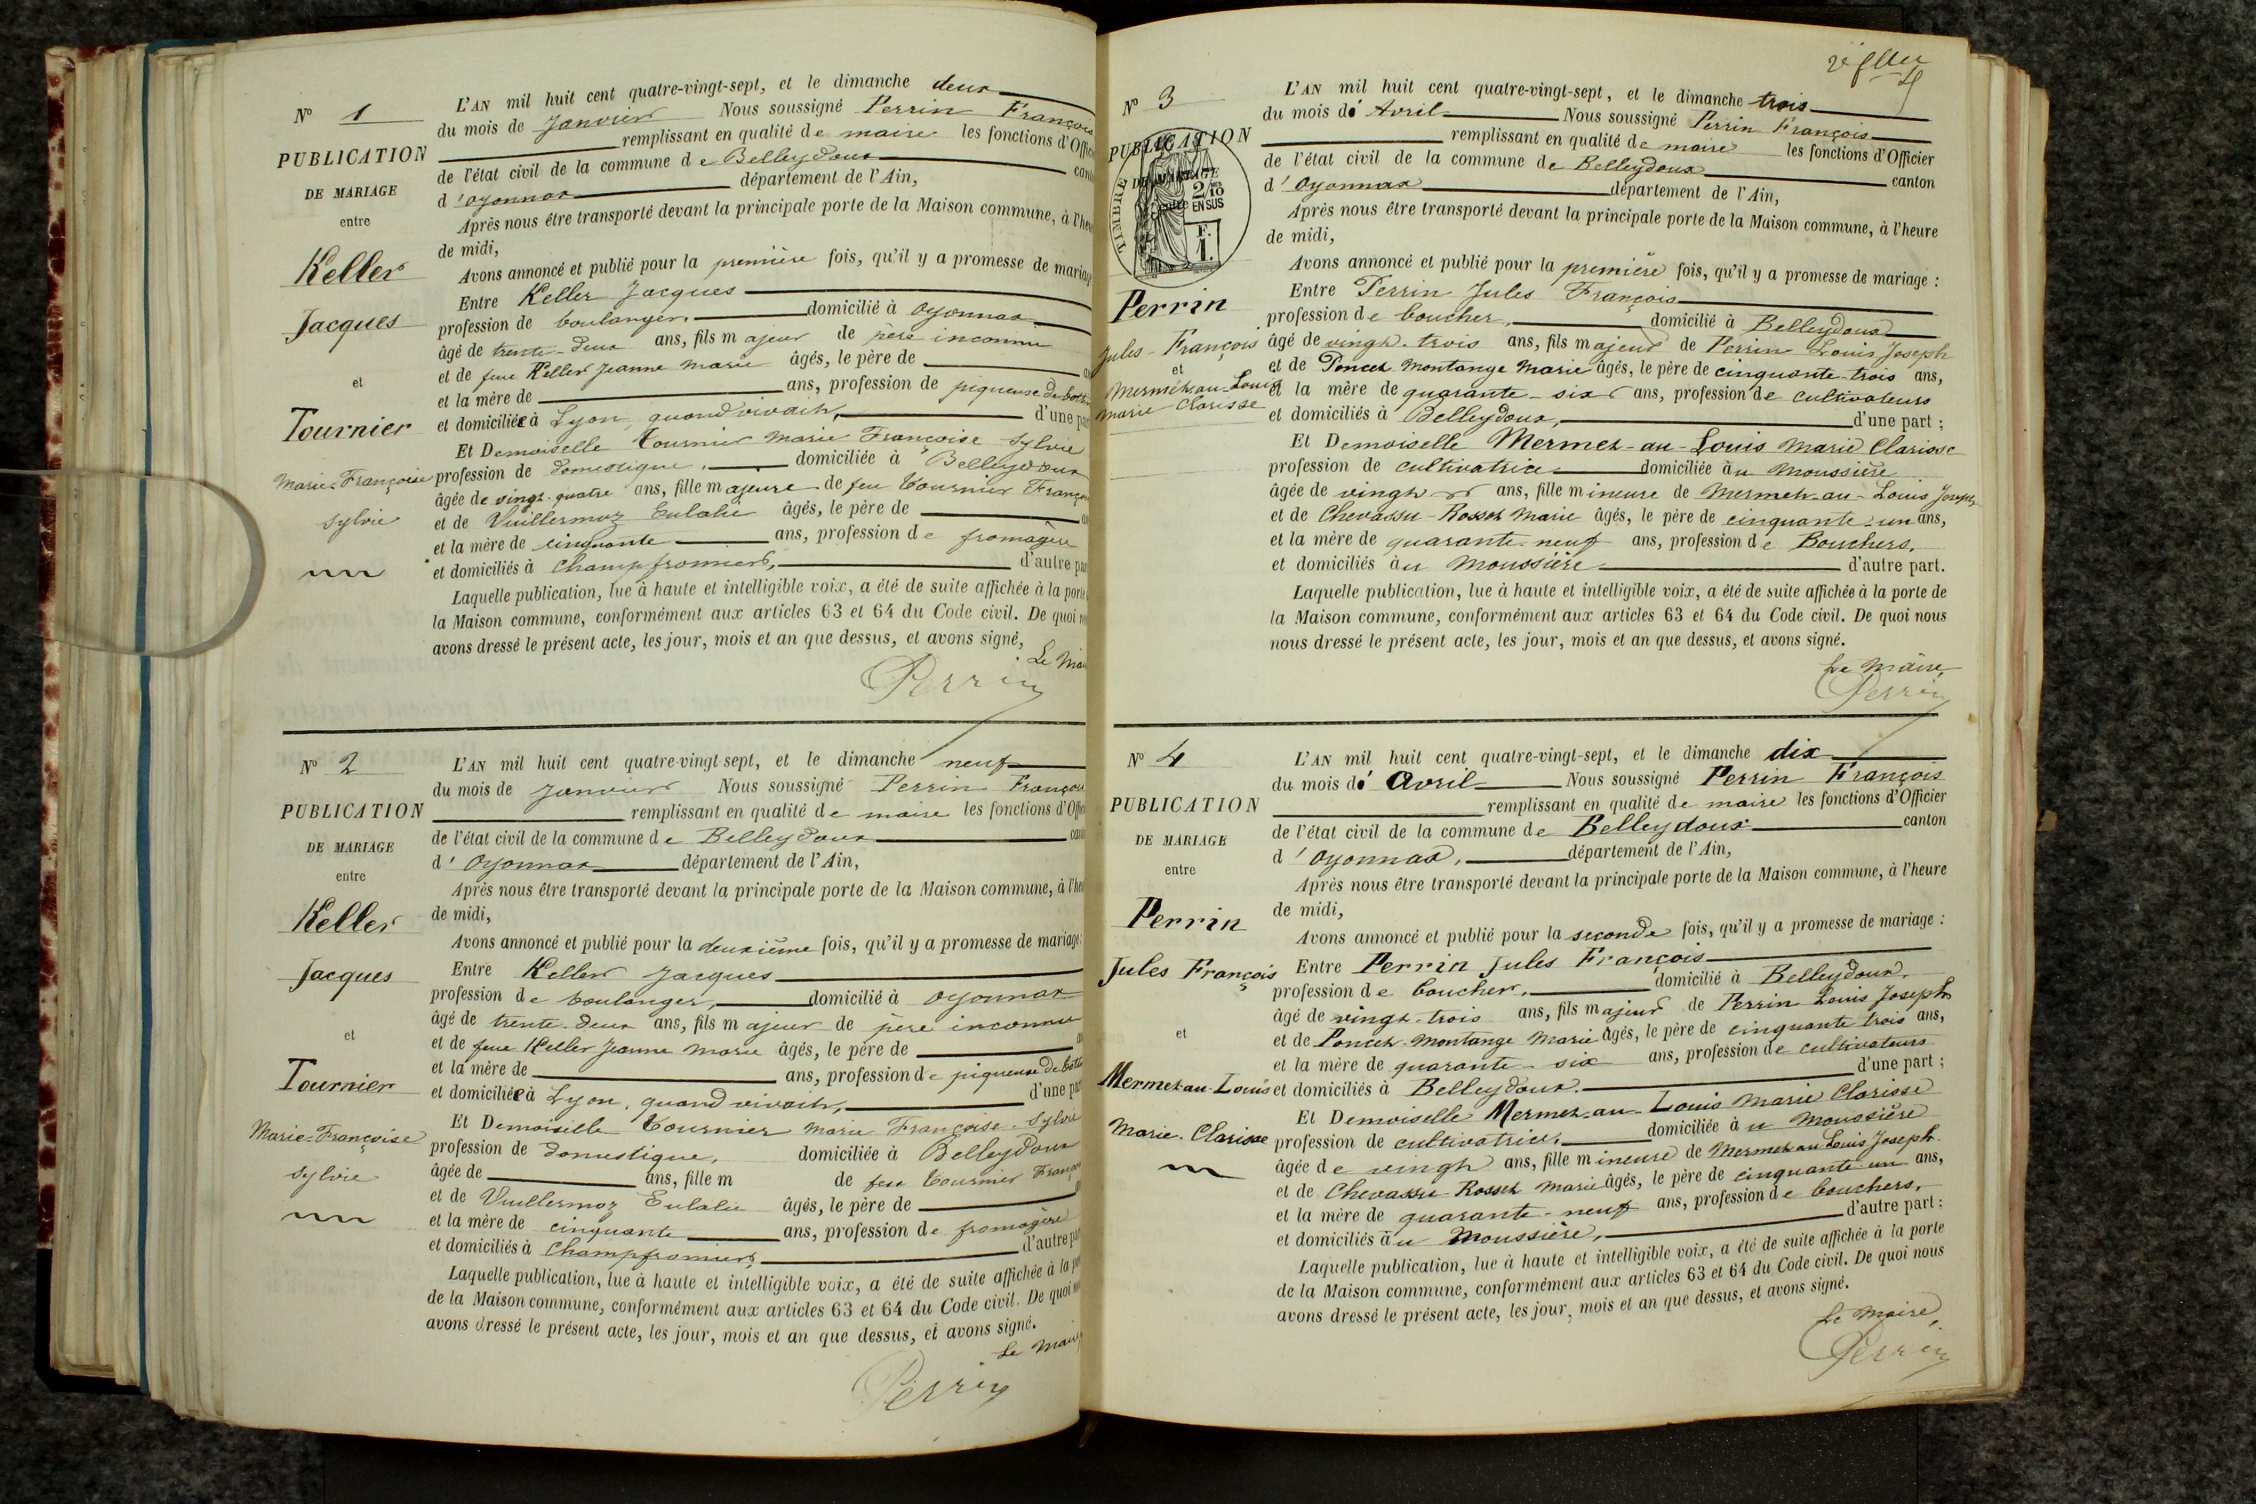 N° 1
PUBLICATION
DE MARIAGE
entre
Keller
Jacques
et
Tournier
Marie-Françoise
Sylvie
L'AN mil huit cent quatre-vingt-sept, et le dimanche deux
du mois de Janvier Nous soussigné Perrin François
remplissant en qualité de maire les fonctions d'Offic
de l'état civil de la commune de Belleydoux cant
d'Oyonnax département de l'Ain,
Après nous être transporté devant la principale porte de la Maison commune, à l'heu
de midi,
Avons annoncé et publié pour la première fois, qu'il y a promesse de mariage
Entre Keller Jacques
profession de boulanger, domicilié à Oyonnax
âgé de trente-deux ans, fils majeur de père inconnu
et de feue Keller Jeanne Marie âgés, le père de
et la mère de ans, profession de piqueuse de
et domiciliée à Lyon, quand vivait, d'une par
Et Demoiselle Tournier Marie Françoise Sylvie
profession de domestique, domiciliée à Belleydoux
âgée de vingt-quatre ans, fille majeure de feu Tournier Françoi
et de Vuillermoz Eulalie âgés, le père de
et la mère de cinquante ans, profession de fromagère
et domiciliés à Champfromier, d'autre par
Laquelle publication, lue à haute et intelligible voix, a été de suite affichée à la porte
la Maison commune, conformément aux articles 63 et 64 du Code civil. De quoi n
avons dressé le présent acte, les jour, mois et an que dessus, et avons signé,
Le Mai
Perrin
N° 2
PUBLICATION
DE MARIAGE
entre
Keller
Jacques
et
Tournier
Marie-Françoise
Sylvie
L'AN mil huit cent quatre-vingt-sept, et le dimanche neuf
du mois de Janvier Nous soussigné Perrin François
remplissant en qualité de maire les fonctions d'Offic
de l'état civil de la commune de Belleydoux can
d'Oyonnax département de l'Ain,
Après nous être transporté devant la principale porte de la Maison commune, à l'heu
de midi,
Avons annoncé et publié pour la deuxième fois, qu'il y a promesse de mariage:
Entre Keller Jacques
profession de boulanger, domicilié à Oyonnax
âgé de trente-deux ans, fils majeur de père inconnu
et de feue Keller Jeanne Marie âgés, le père de
et la mère de ans, profession de piqueuse de
et domiciliée à Lyon, quand vivait, d'une par
Et Demoiselle Tournier Marie Françoise-Sylvie
profession de domestique, domiciliée à Belleydoux
âgée de ans, fille m de feu Tournier Franço
et de Vuillermoz Eulalie âgés, le père de
et la mère de cinquante ans, profession de fromagère
et domiciliés à Champfromier, d'autre par
Laquelle publication, lue à haute et intelligible voix, a été de suite affichée à la po
de la Maison commune, conformément aux articles 63 et 64 du Code civil. De quoi n
avons dressé le présent acte, les jour, mois et an que dessus, et avons signé.
Le Maire
Perrin
N° 3
PUBLICATION
DE MARIAGE
entre
TIMBRE
2/10
EN SUS
F.
1.
Perrin
Jules-François
et
Mermet-au-Louis
Marie Clarisse
L'AN mil huit cent quatre-vingt-sept, et le dimanche trois
du mois d'Avril Nous soussigné Perrin François
remplissant en qualité de maire les fonctions d'Officier
de l'état civil de la commune de Belleydoux canton
d'Oyonnax département de l'Ain,
Après nous être transporté devant la principale porte de la Maison commune, à l'heure
de midi,
Avons annoncé et publié pour la première fois, qu'il y a promesse de mariage :
Entre Perrin Jules François
profession de boucher, domicilié à Belleydoux
âgé de vingt-trois ans, fils majeur de Perrin Louis Joseph
et de Poncet-Montange Marie âgés, le père de cinquante-trois ans,
et la mère de quarante-six ans, profession de cultivateurs
et domiciliés à Belleydoux, d'une part ;
Et Demoiselle Mermet-au-Louis Marie Clarisse
profession de cultivatrice domiciliée àu Moussière
âgée de vingt ans, fille mineure de Mermet-au-Louis Joseph
et de Chevassu-Rosset Marie âgés, le père de cinquante-un ans,
et la mère de quarante-neuf ans, profession de Bouchers,
et domiciliés àu Moussière d'autre part.
Laquelle publication, lue à haute et intelligible voix, a été de suite affichée à la porte de
la Maison commune, conformément aux articles 63 et 64 du Code civil. De quoi nous
nous dressé le présent acte, les jour, mois et an que dessus, et avons signé.
Le Maire,
Perrin
N° 4
PUBLICATION
DE MARIAGE
entre
Perrin
Jules François
et
Mermet-au-Louis
Marie-Clarisse
L'AN mil huit cent quatre-vingt-sept, et le dimanche dix
du mois d'Avril Nous soussigné Perrin François
remplissant en qualité de maire les fonctions d'Officier
de l'état civil de la commune de Belleydoux canton
d'Oyonnax, département de l'Ain,
Après nous être transporté devant la principale porte de la Maison commune, à l'heure
de midi,
Avons annoncé et publié pour la seconde fois, qu'il y a promesse de mariage :
Entre Perrin Jules François
profession de boucher, domicilié à Belleydoux,
âgé de vingt-trois ans, fils majeur de Perrin Louis Joseph
et de Poncet-Montange Marie âgés, le père de cinquante trois ans,
et la mère de quarante-six ans, profession de cultivateurs
et domiciliés à Belleydoux. d'une part ;
Et Demoiselle Mermet-au-Louis Marie Clarisse
profession de cultivatrice, domiciliée àu Moussière
âgée de vingt ans, fille mineure de Mermet au Louis Joseph
et de Chevassu-Rosset Marie âgés, le père de cinquante-un ans,
et la mère de quarante-neuf ans, profession de bouchers,
et domiciliés àu Moussière, d'autre part :
Laquelle publication, lue à haute et intelligible voix, a été de suite affichée à la porte
de la Maison commune, conformément aux articles 63 et 64 du Code civil. De quoi nous
avons dressé le présent acte, les jour, mois et an que dessus, et avons signé.
Le Maire,
Perrin